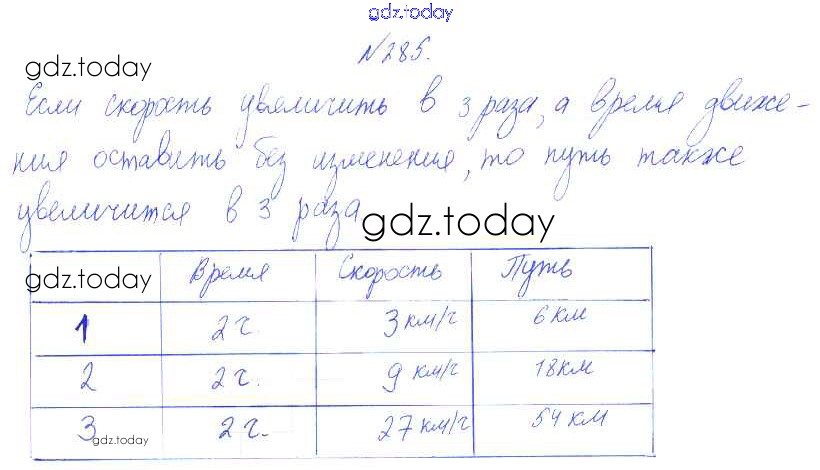 gdz.today
№285.
gdz.today
Если скорость увеличить в 3 раза, а время движе-
ния оставить без изменения, то путь также
увеличится в 3 раза
gdz.today
gdz.today Время Скорость Путь
1 2 ч. 3 км/ч 6 км
2 2 ч. 9 км/ч 18 км
3 2 ч. 27 км/ч 54 км
gdz.today